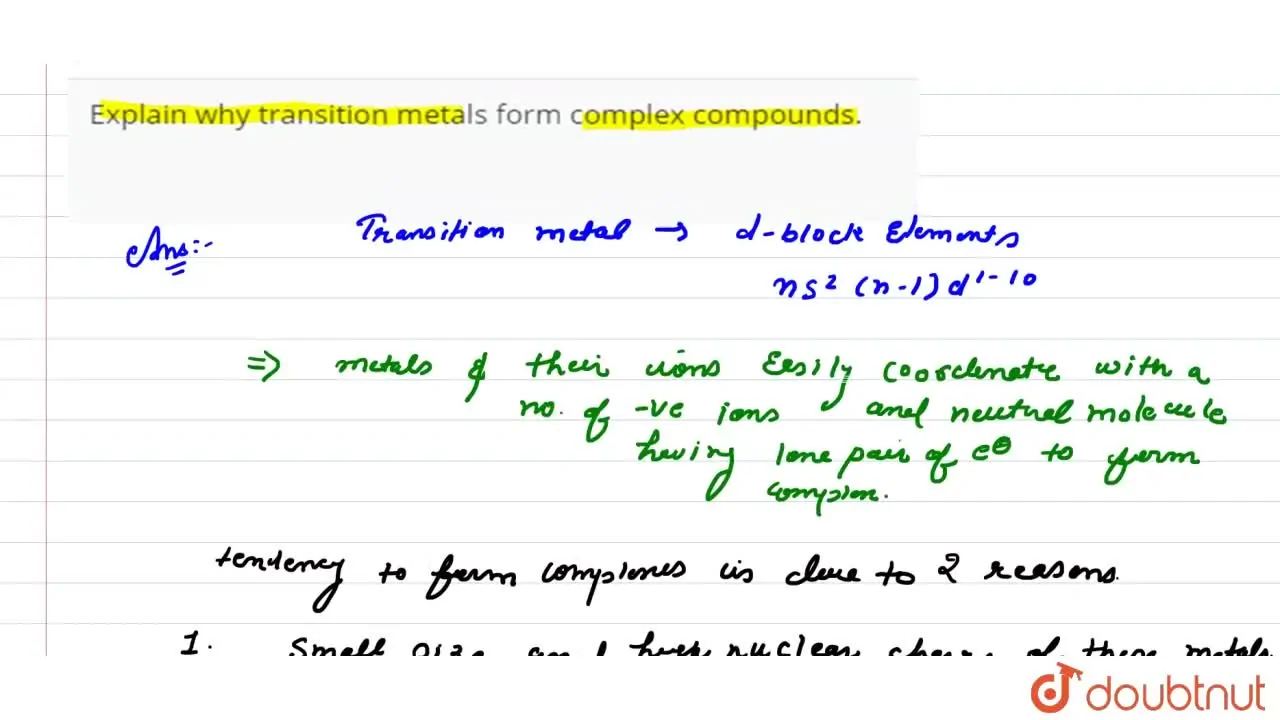 Explain why transition metals form complex compounds.
Ans:-
Transition metal → d-block Elements
ns² (n-1) d¹⁻¹⁰
⇒ metals & their ions Easily coordenate with a
no. of -ve ions and neutral molecule
having lone pair of e⊖ to form
complex.
tendency to form complexes is due to 2 reasons.
1. Small size and high nuclear charge of these metals
doubtnut